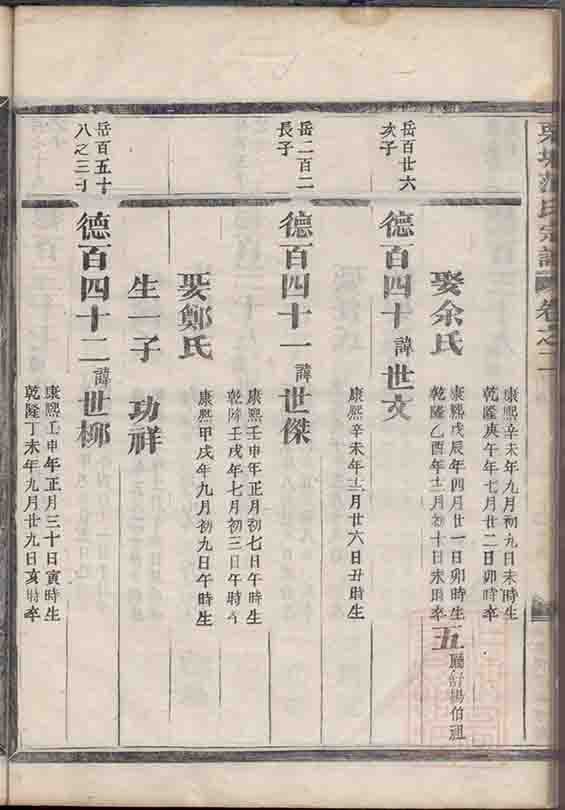 氏宗譜 卷之二
康熙辛未年九月初九日未時生
乾隆庚午年七月廿二日卯時卒
娶余氏
康熙戊辰年四月廿一日卯時生
乾隆乙酉年十二月初十日未時卒
五
岳百廿六
次子
德百四十 諱 世文
康熙辛未年十二月廿六日丑時生
岳二百二
長子
德百四十一 諱 世傑
康熙壬申年正月初七日午時生
乾隆壬戌年七月初三日午時卒
娶鄭氏
康熙甲戌年九月初九日午時生
生一子 功祥
岳百五十
八之三子
德百四十二 諱 世柳
康熙壬申年正月三十日寅時生
乾隆丁未年九月廿九日亥時卒